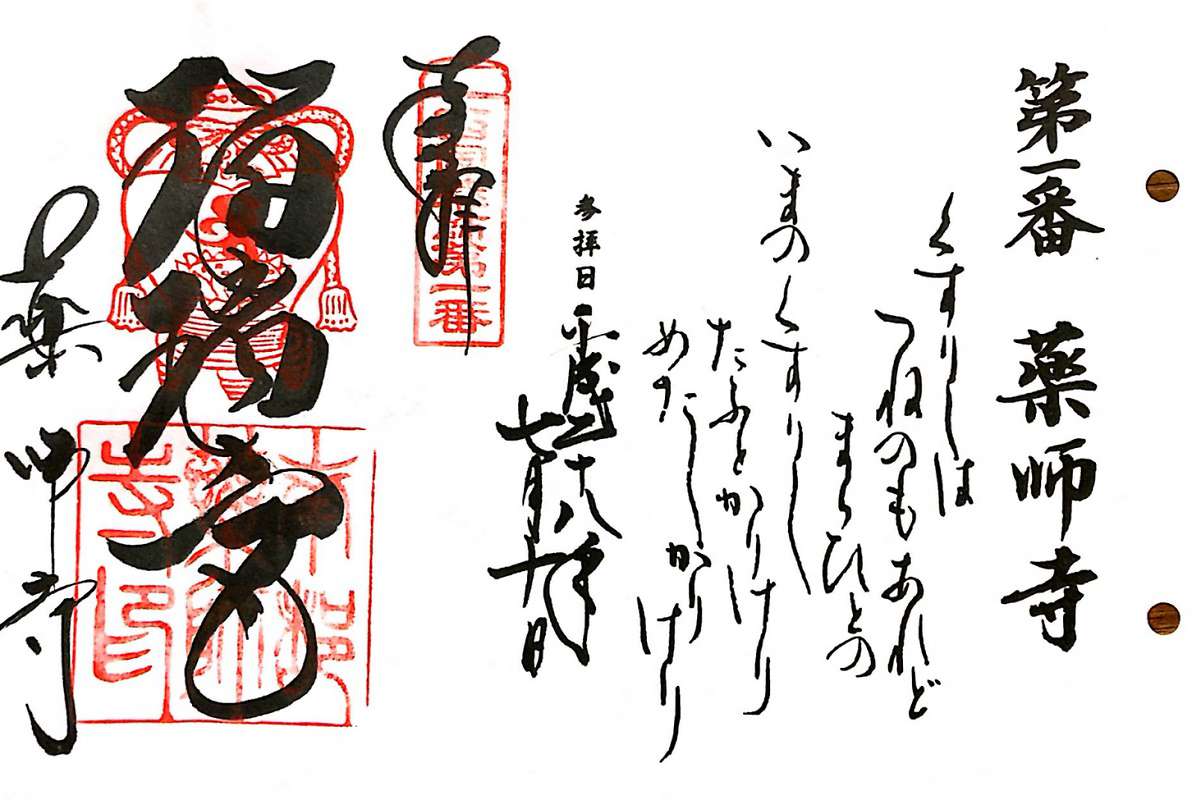 第一番　薬師寺
くすりしは
つねのもあれど
まらひとの
いまのくすりし
たふとかりけり
めだしかりけり
参拝日 平成二十八年
七月十日
奉拝
西国薬師第一番
瑠璃光
薬師寺